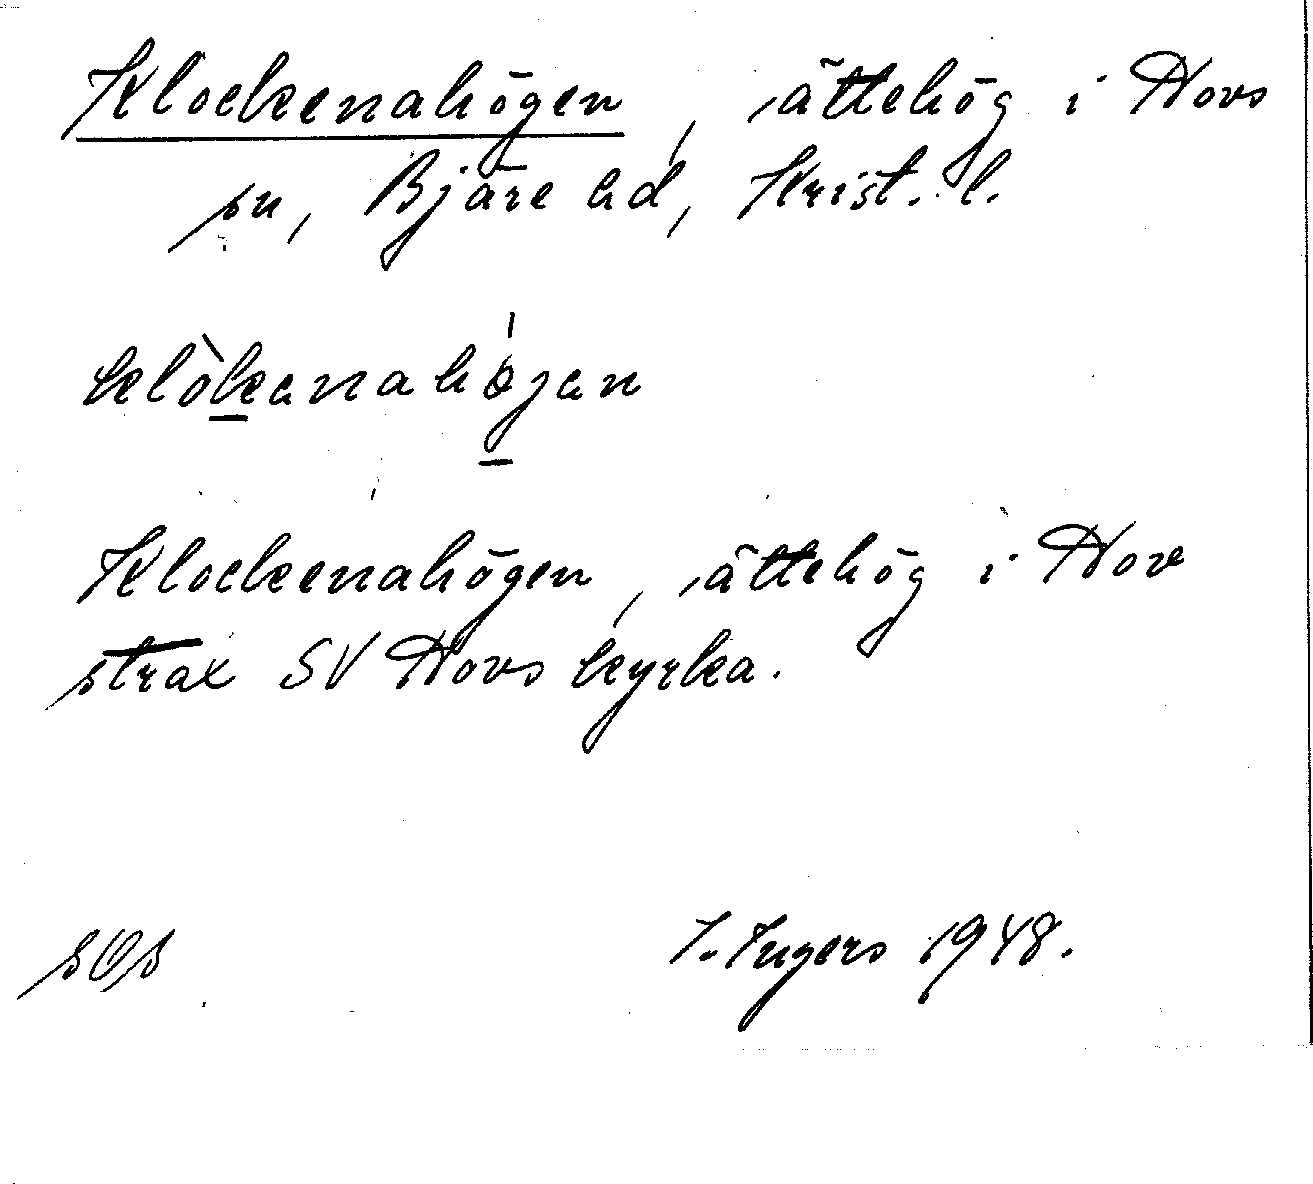 Klockenahögen, ättehög i Hovs
sn, Bjäre hd, Krist. l.
klòkenahøjen
Klockenahögen, ättehög i Hov
strax SV Hovs kyrka.
SOS I. Ingers 1948.